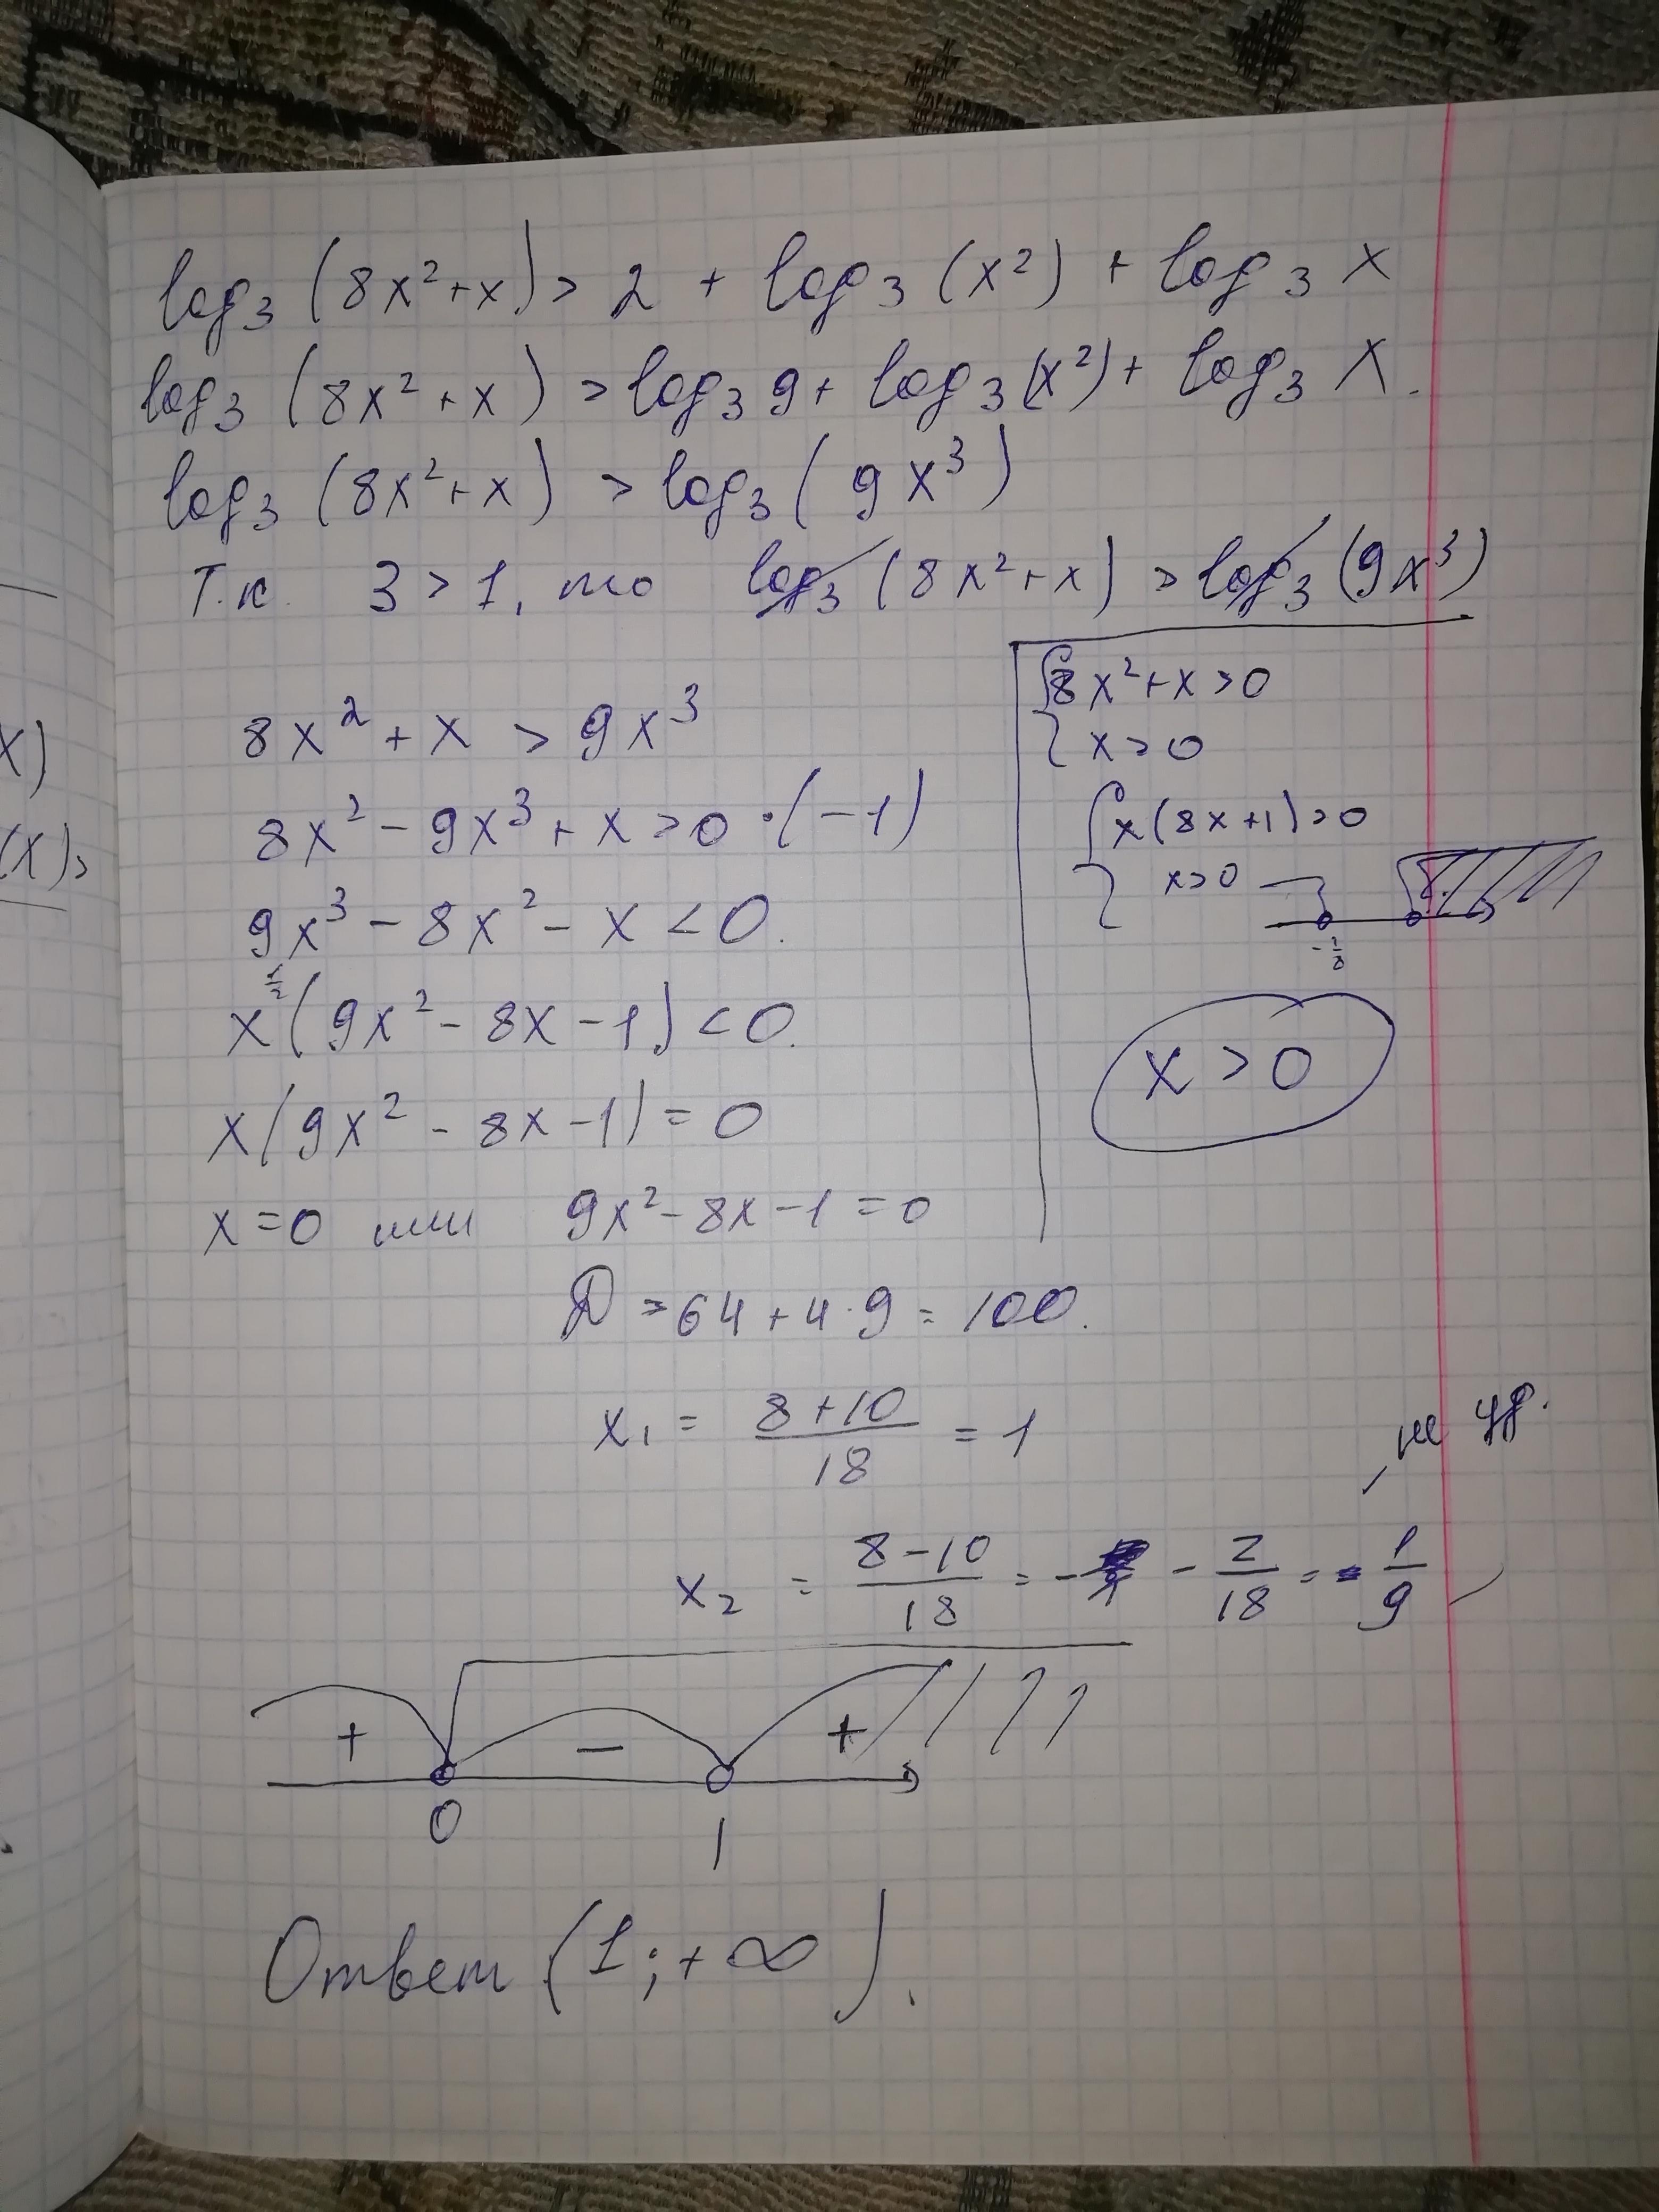 log₃(8x²+x) > 2 + log₃(x²) + log₃ x
log₃(8x²+x) > log₃ 9 + log₃(x²) + log₃ x.
log₃(8x²+x) > log₃(9x³)
Т.к. 3 > 1, то log₃(8x²+x) > log₃(9x³)
8x² + x > 9x³
8x² - 9x³ + x > 0 ·(-1)
9x³ - 8x² - x < 0.
x(9x² - 8x - 1) < 0.
x(9x² - 8x - 1) = 0
x = 0 или 9x² - 8x - 1 = 0
D = 64 + 4·9 = 100.
x₁ = (8+10)/18 = 1
x₂ = (8-10)/18 = - - 2/18 = - 1/9
не уд.
8x²+x > 0
x > 0
x(8x+1) > 0
x > 0
-1/8
x > 0
+ - +
0 1
Ответ (1; +∞).
x)
(x) >